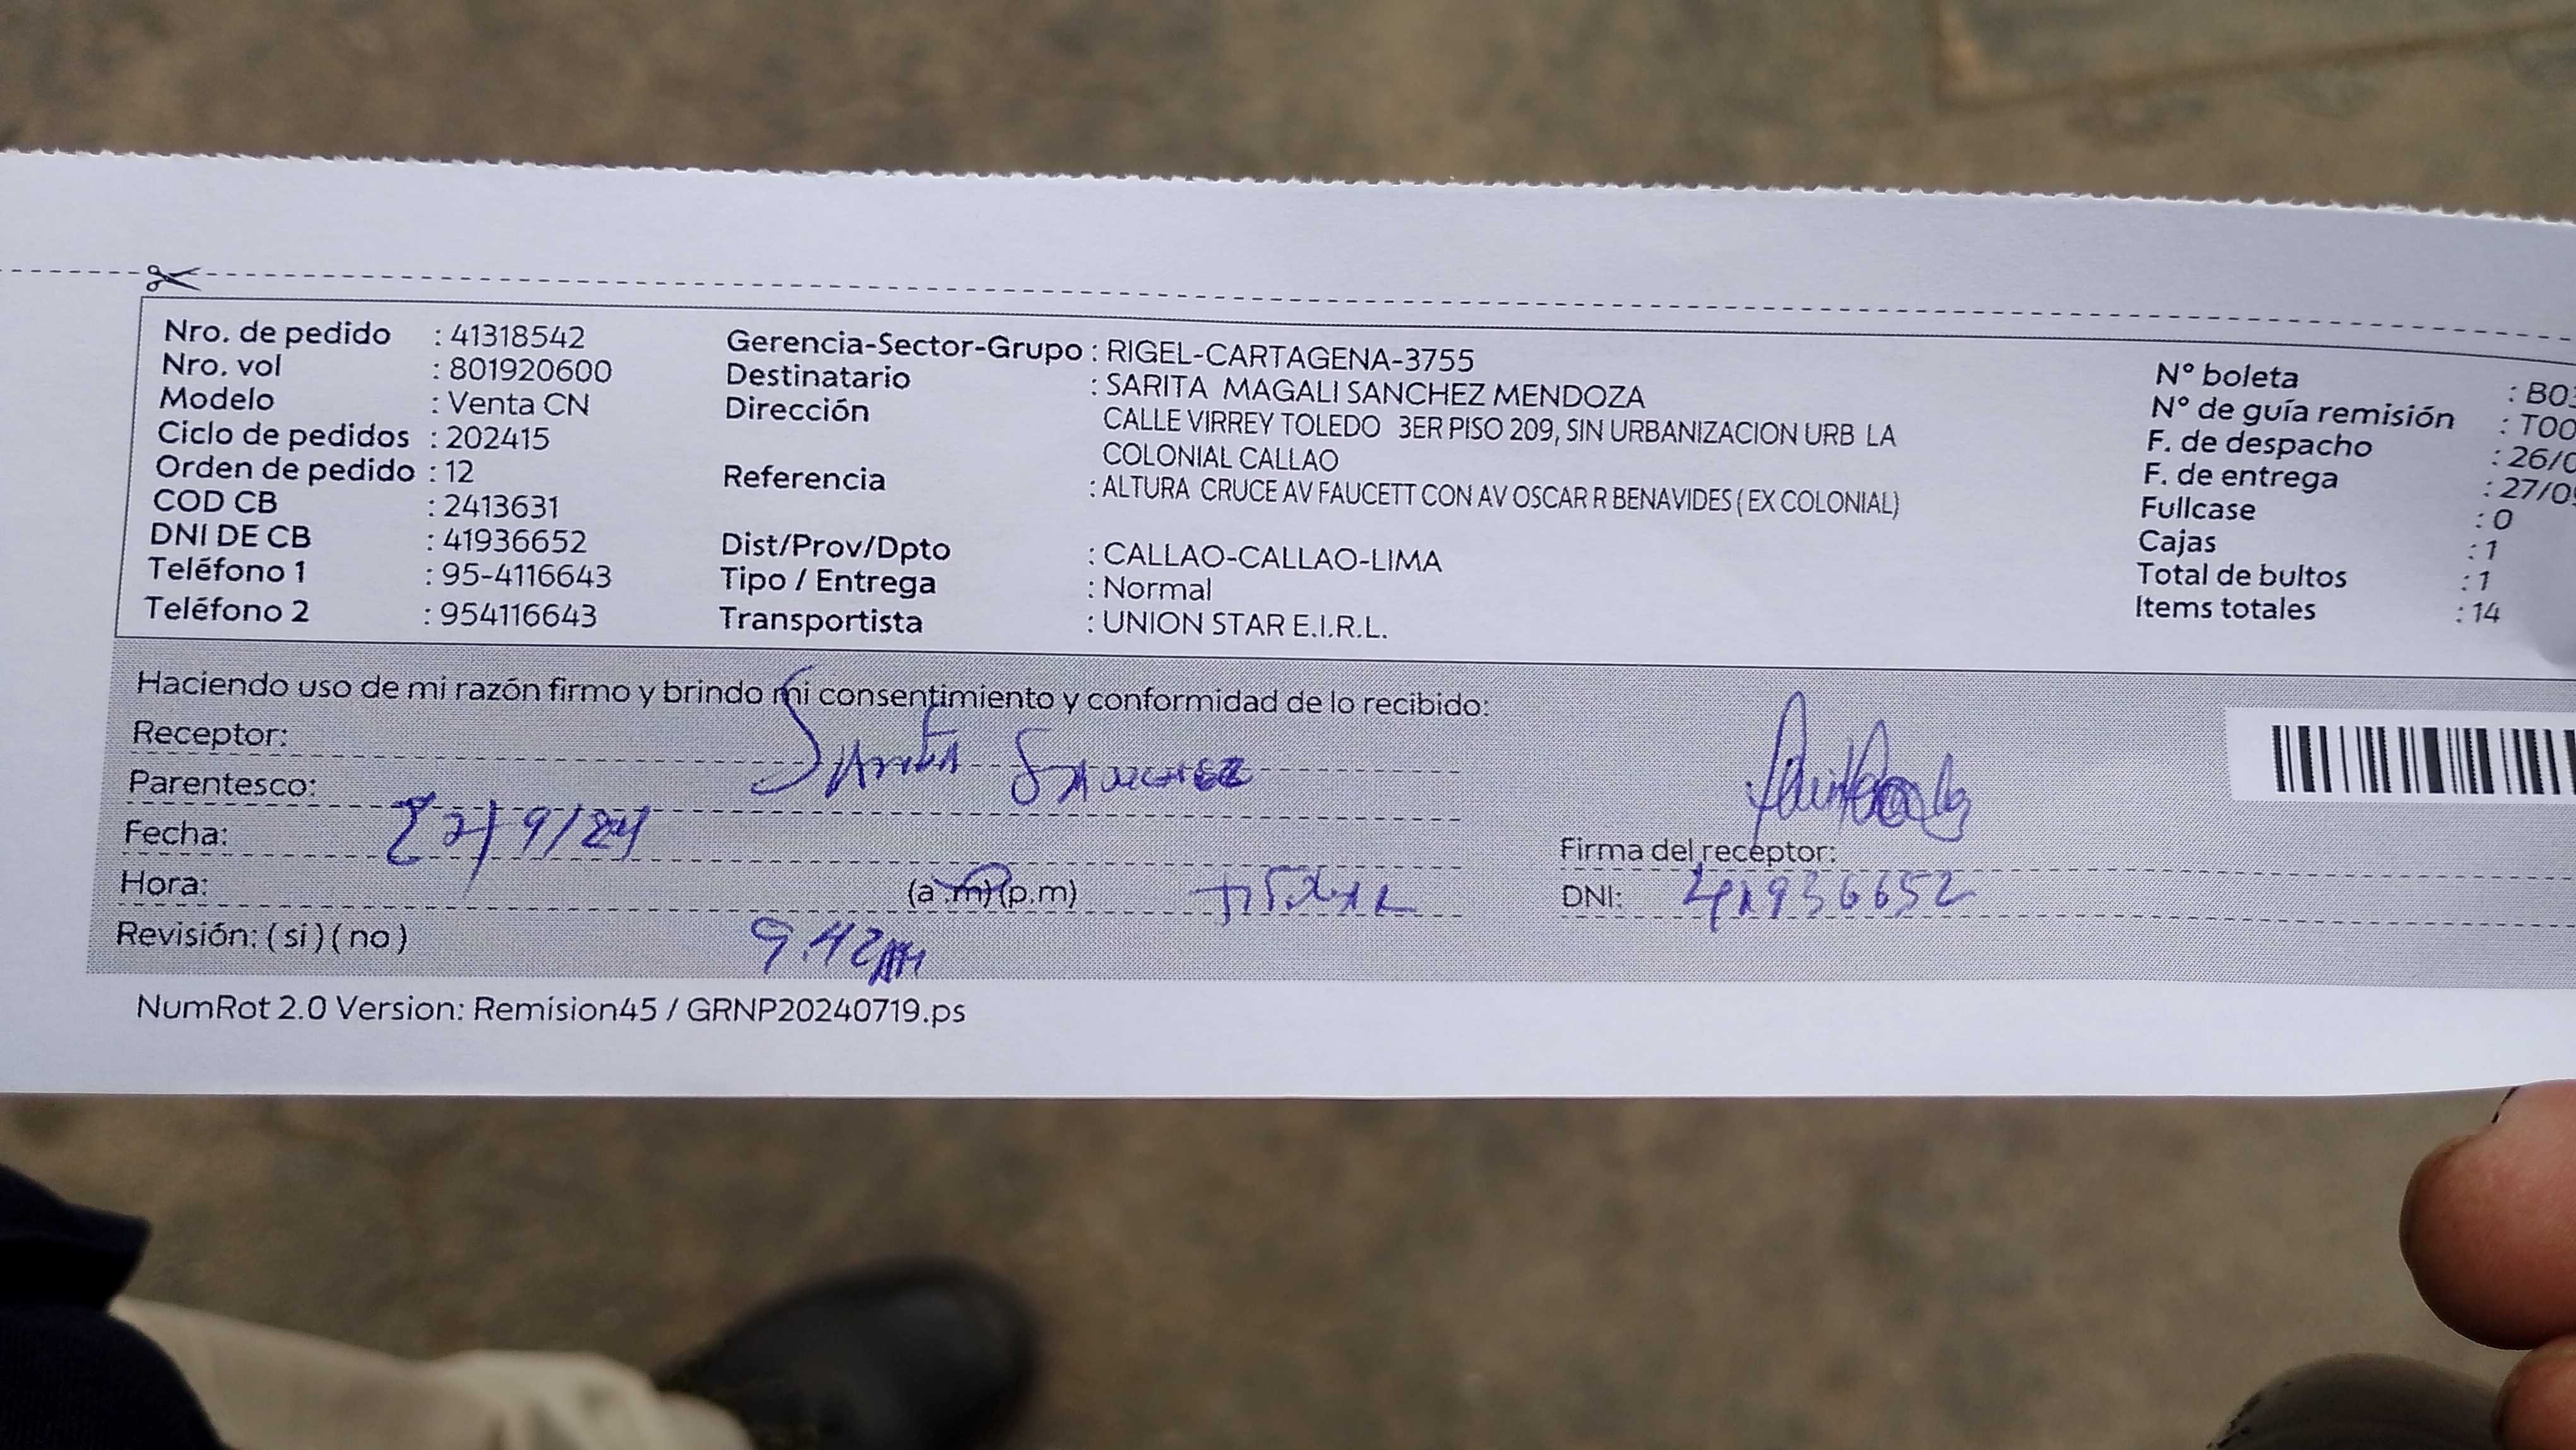 Nro. de pedido : 41318542
Nro. vol : 801920600
Modelo : Venta CN
Ciclo de pedidos : 202415
Orden de pedido : 12
COD CB : 2413631
DNI DE CB : 41936652
Teléfono 1 : 95-4116643
Teléfono 2 : 954116643
Gerencia-Sector-Grupo : RIGEL-CARTAGENA-3755
Destinatario : SARITA MAGALI SANCHEZ MENDOZA
Dirección CALLE VIRREY TOLEDO 3ER PISO 209, SIN URBANIZACION URB LA
COLONIAL CALLAO
Referencia : ALTURA CRUCE AV FAUCETT CON AV OSCAR R BENAVIDES ( EX COLONIAL)
Dist/Prov/Dpto : CALLAO-CALLAO-LIMA
Tipo / Entrega : Normal
Transportista : UNION STAR E.I.R.L.
N° boleta : B03
N° de guía remisión : T00
F. de despacho : 26/0
F. de entrega : 27/09
Fullcase : 0
Cajas : 1
Total de bultos : 1
Items totales : 14
Haciendo uso de mi razón firmo y brindo mi consentimiento y conformidad de lo recibido:
Receptor: Sarita Sanchez
Parentesco:
Fecha: 27/9/24
Hora: (a .m)(p.m) Titular
Revisión: ( si ) ( no ) 9.42 AM
Firma del receptor:
DNI: 41936652
NumRot 2.0 Version: Remision45 / GRNP20240719.ps